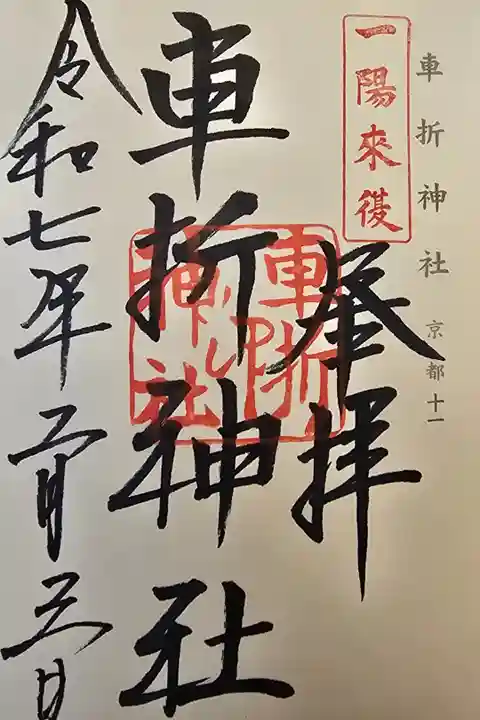 車折神社 京都十一
一陽来復
奉拝
車折神社
車折神社之印
令和七年二月三日